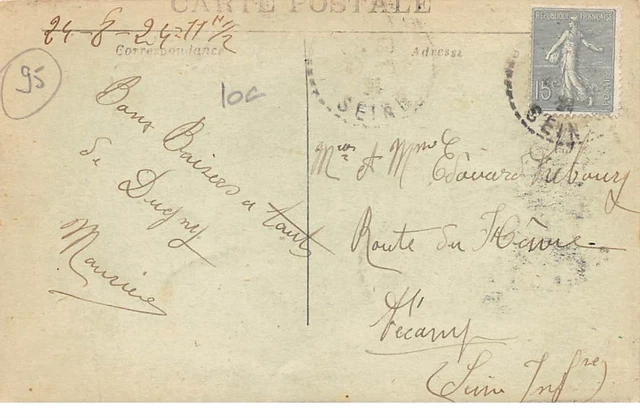 CARTE POSTALE
24-8-24-11 H 1/2
Correspondance
Adresse
95
10c
REPUBLIQUE FRANÇAISE
15c
SEINE
SEIN
Bons Baisers a tous
de Dugny
Maurice
Mr et Mme Edouard
Route du Hâvre
Fécamp
(Seine Infre)